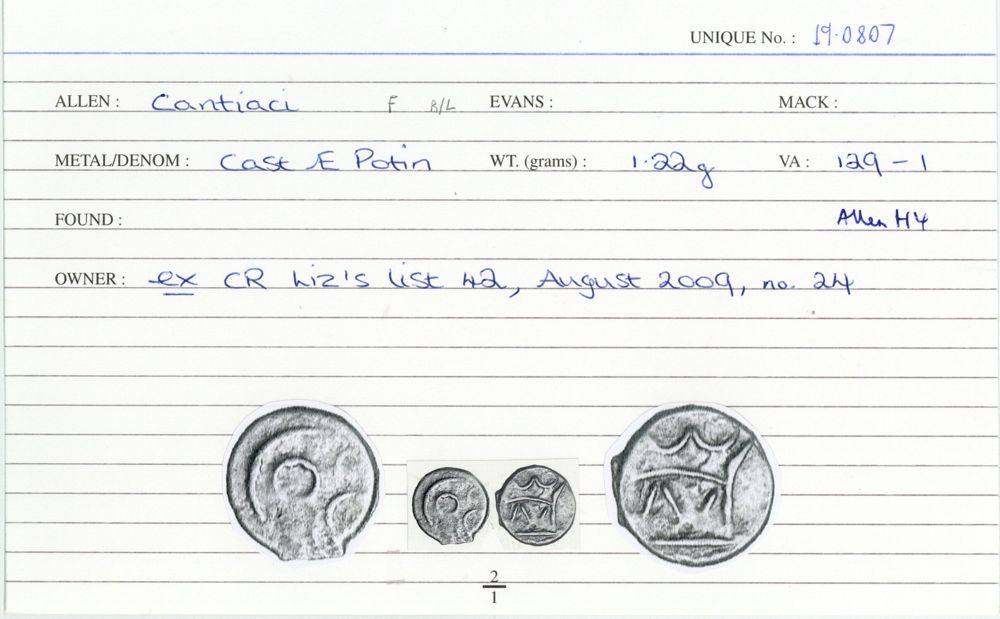 UNIQUE No. : 19.0807
ALLEN : Cantiaci F B/L EVANS : MACK :
METAL/DENOM : Cast Æ Potin WT. (grams) : 1.22g VA : 129-1
FOUND : Allen H4
OWNER : ex CR Liz's list 42, August 2009, no. 24
2
1